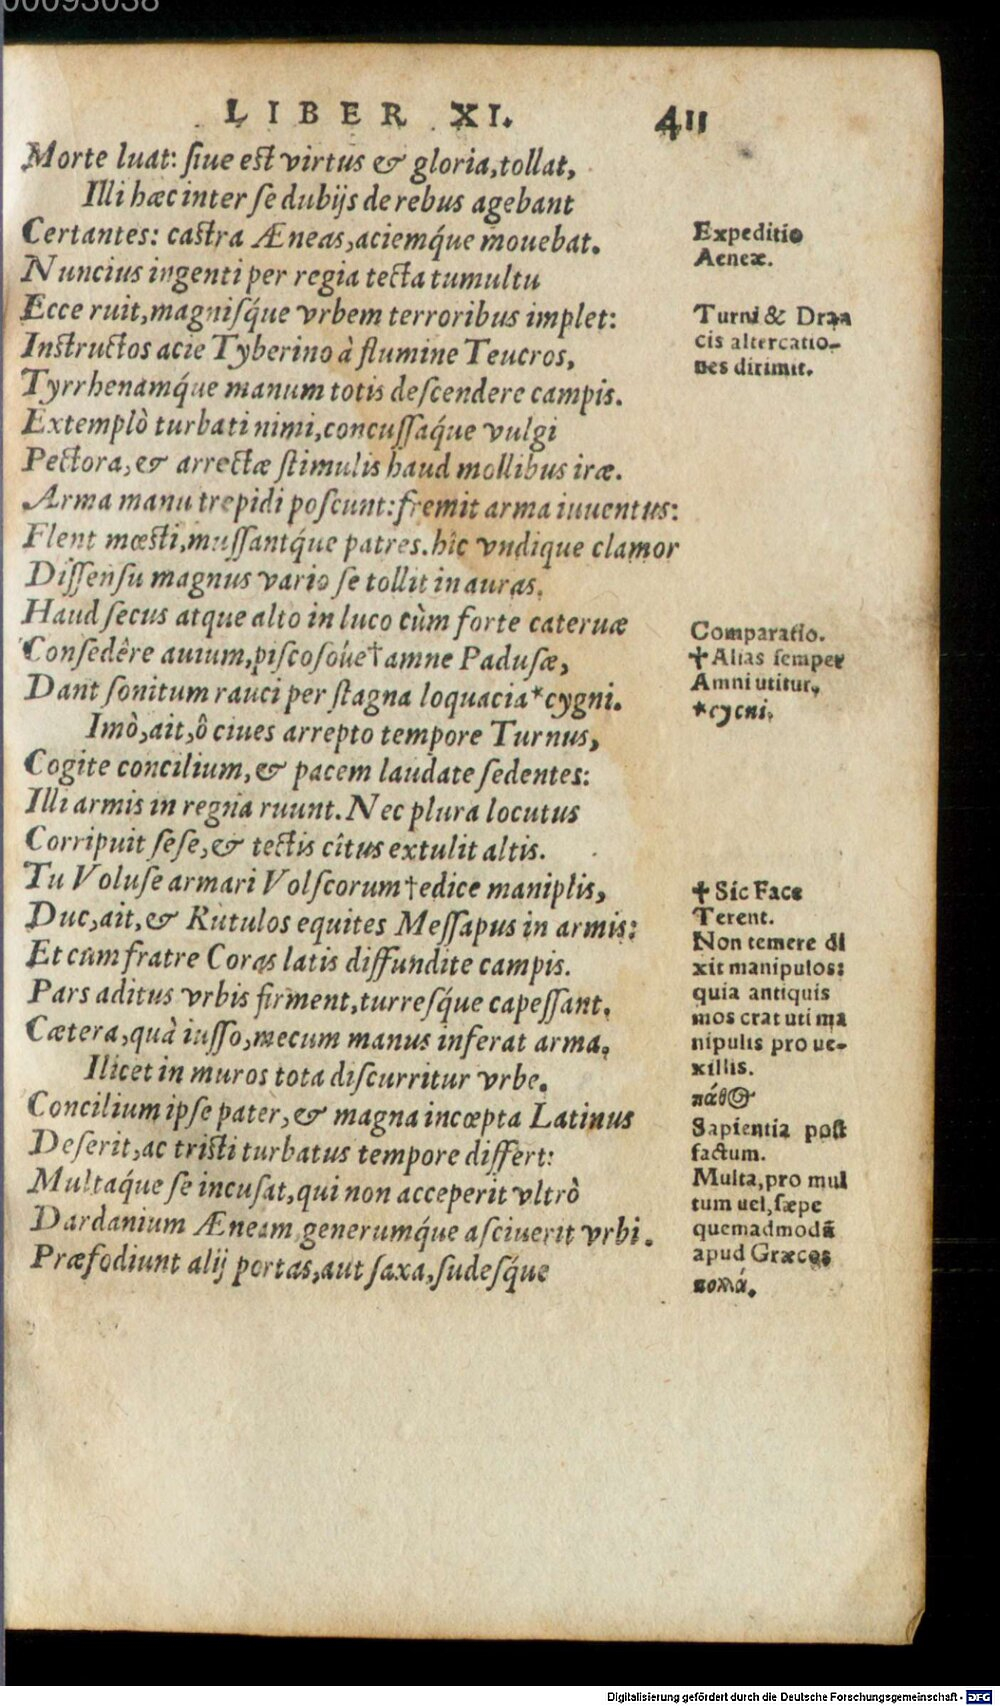 00093038
LIBER XI. 411
Morte luat: ſiue eſt virtus & gloria, tollat,
Illi hæc inter ſe dubijs de rebus agebant
Certantes: caſtra Æneas, aciemq́ue mouebat.
Nuncius ingenti per regia tecta tumultu
Ecce ruit, magniſq́ue vrbem terroribus implet:
Inſtructos acie Tyberino à flumine Teucros,
Tyrrhenamq́ue manum totis deſcendere campis.
Extemplò turbati nimi, concuſſaq́ue vulgi
Pectora, & arrectæ ſtimulis haud mollibus iræ.
Arma manu trepidi poſcunt: fremit arma iuuentus:
Flent mœſti, muſſantq́ue patres. hîc vndique clamor
Diſſenſu magnus vario ſe tollit in auras.
Haud ſecus atque alto in luco cùm forte cateruæ
Conſedêre auium, piſcoſóue† amne Paduſæ,
Dant ſonitum rauci per ſtagna loquacia* cygni.
Imò, ait, ô ciues arrepto tempore Turnus,
Cogite concilium, & pacem laudate ſedentes:
Illi armis in regna ruunt. Nec plura locutus
Corripuit ſeſe, & tectis cîtus extulit altis.
Tu Voluſe armari Volſcorum† edice maniplis,
Duc, ait, & Rutulos equites Meſſapus in armis:
Et cum fratre Coras latis diffundite campis.
Pars aditus vrbis firment, turreſq́ue capeſſant,
Cætera, quà iuſſo, mecum manus inferat arma.
Ilicet in muros tota diſcurritur vrbe.
Concilium ipſe pater, & magna incœpta Latinus
Deſerit, ac triſti turbatus tempore differt:
Multaq́ue ſe incuſat, qui non acceperit vltrò
Dardanium Æneam, generumq́ue aſciuerit vrbi.
Præfodiunt alij portas, aut ſaxa, ſudeſq́ue
Expeditio
Aeneæ.
Turni & Dran
cis altercatio-
nes dirimit.
Comparatio.
†Alias ſemper
Amni utitur,
*cycni.
† Sic Face
Terent.
Non temere di
xit manipulos:
quia antiquis
mos erat uti ma
nipulis pro ue-
xillis.
πάθος
Sapientia poſt
factum.
Multa, pro mul
tum uel, ſæpe
quemadmodū
apud Græcos
πολλά.
Digitalisierung gefördert durch die Deutsche Forschungsgemeinschaft - DFG